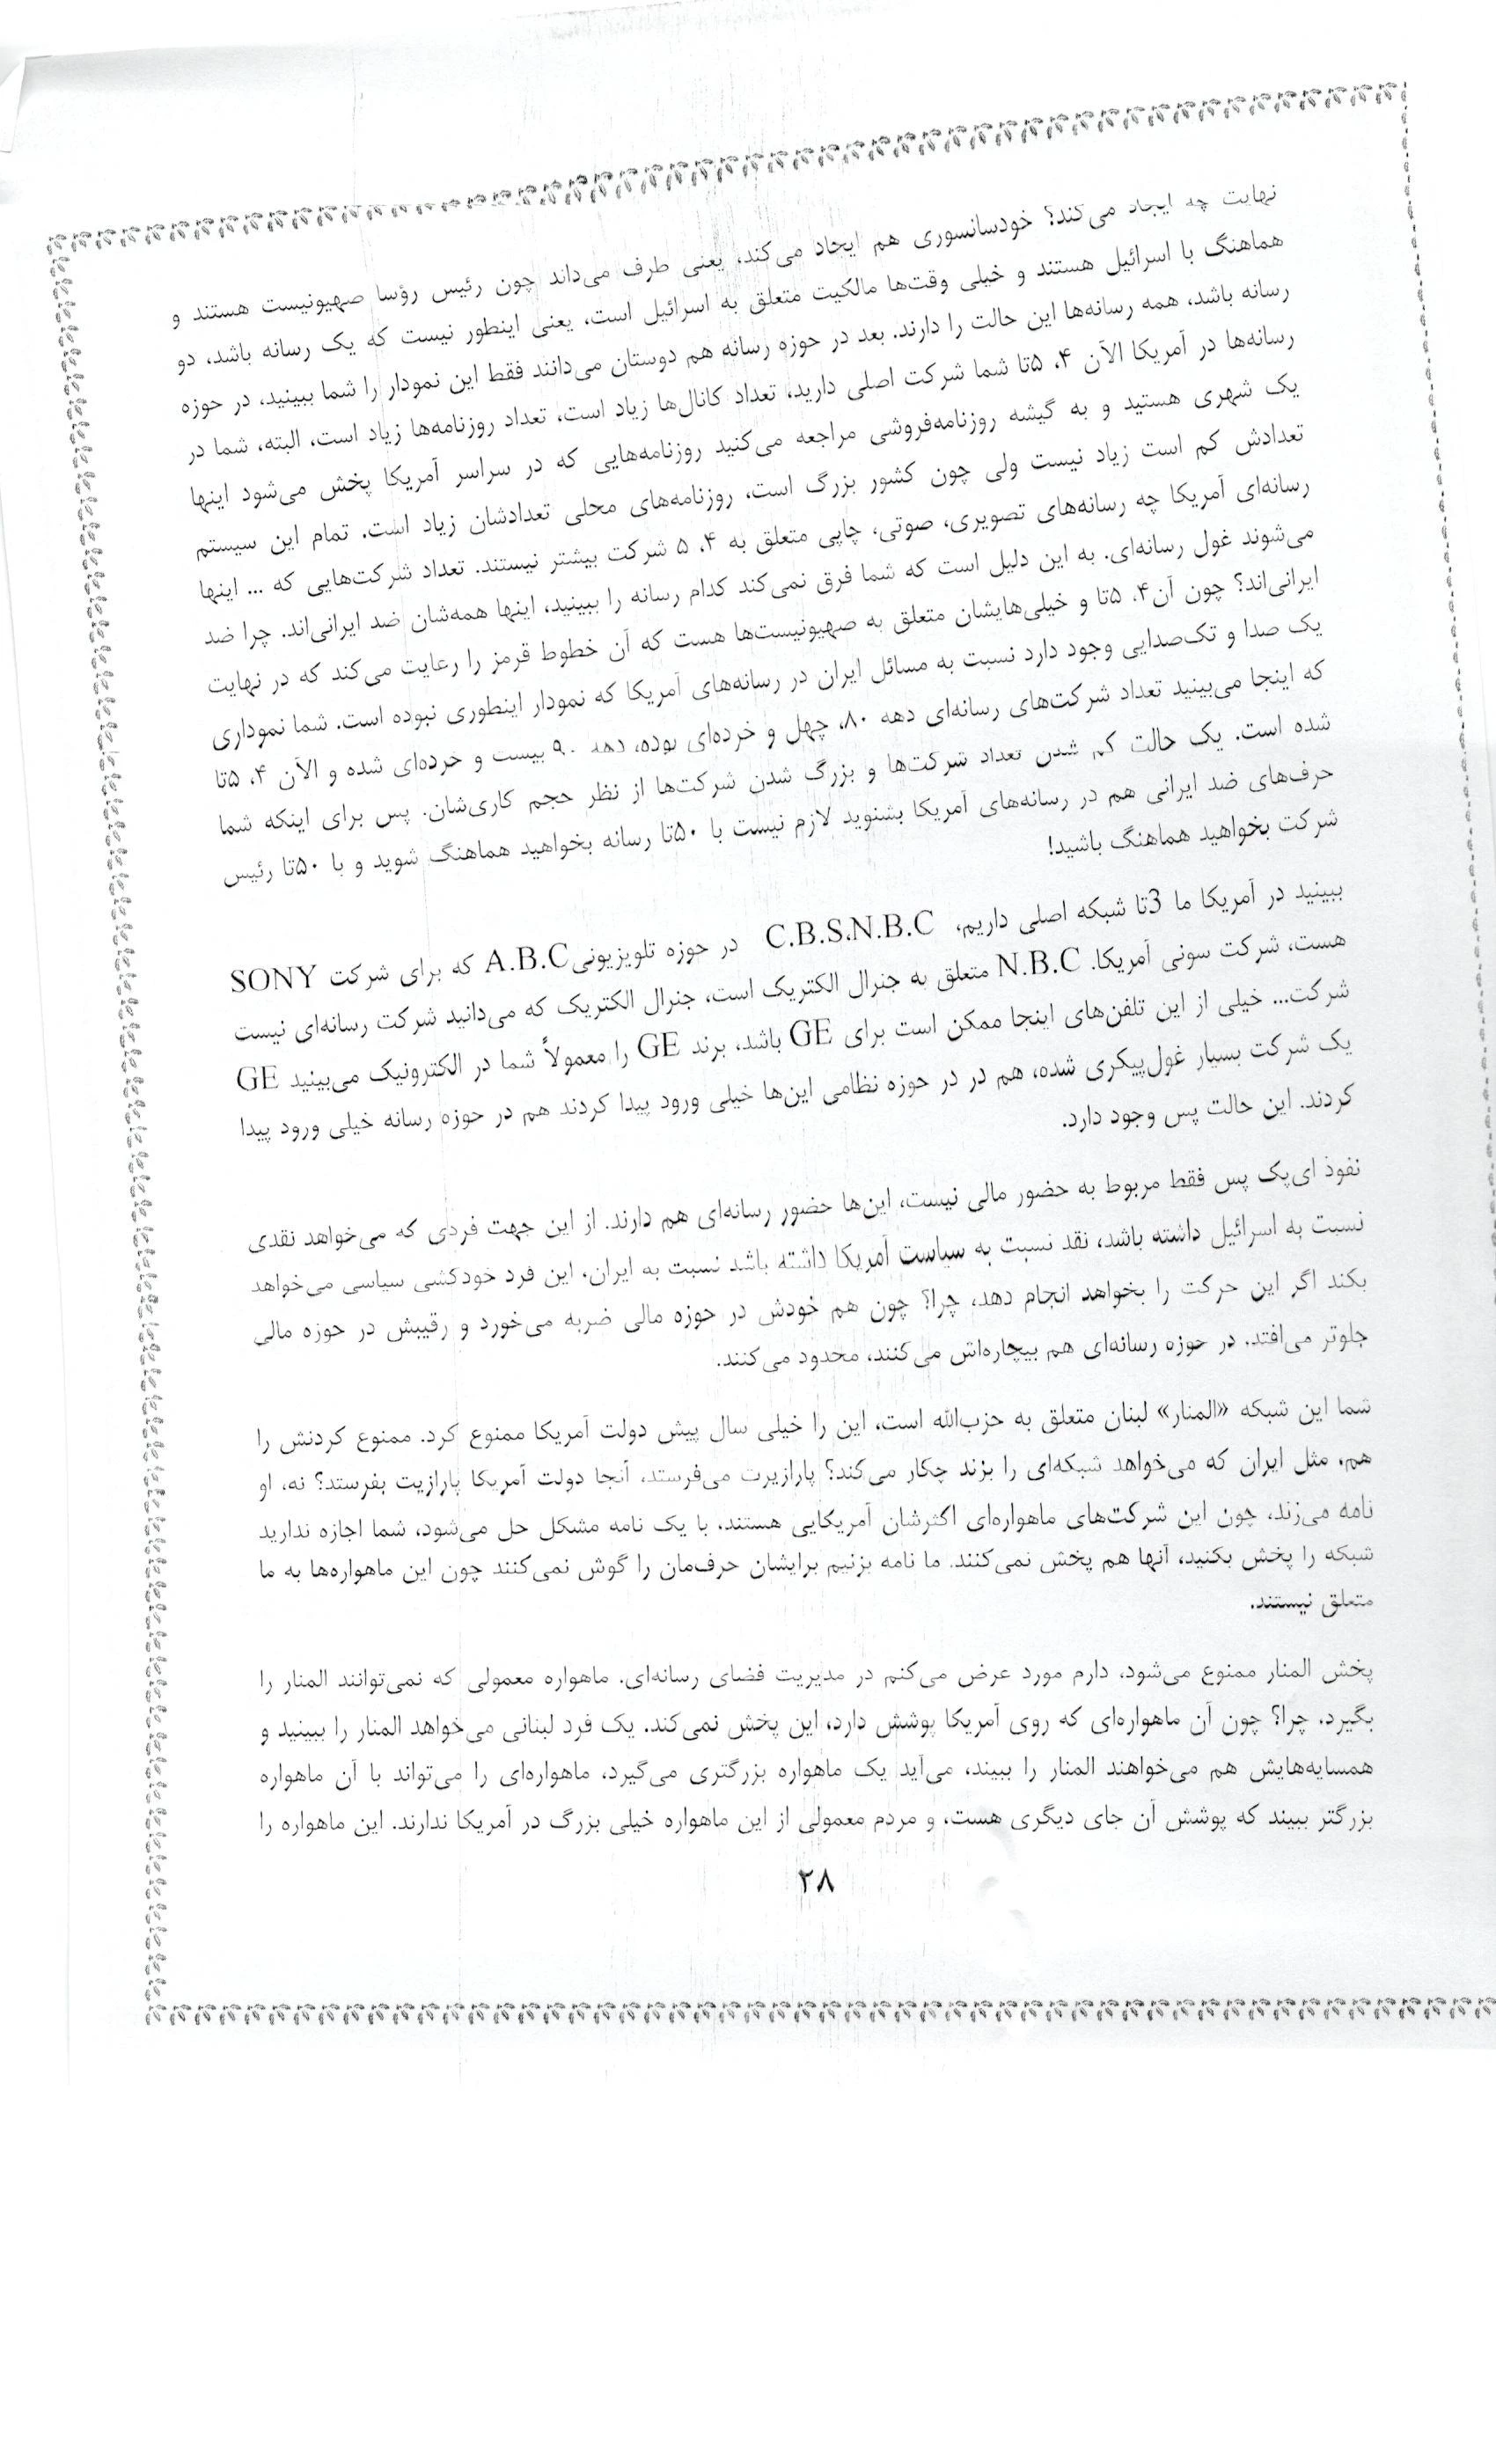 نهایت چه ایجاد می‌کند؟ خودسانسوری هم ایجاد می‌کند، یعنی طرف می‌داند چون رئیس رؤسا صهیونیست هستند و
هماهنگ با اسرائیل هستند و خیلی وقت‌ها مالکیت متعلق به اسرائیل است، یعنی اینطور نیست که یک رسانه باشد، دو
رسانه باشد، همه رسانه‌ها این حالت را دارند. بعد در حوزه رسانه هم دوستان می‌دانند فقط این نمودار را شما ببینید، در حوزه
رسانه‌ها در آمریکا الآن ۴، ۵تا شما شرکت اصلی دارید، تعداد کانال‌ها زیاد است، تعداد روزنامه‌ها زیاد است، البته، شما در
یک شهری هستید و به گیشه روزنامه‌فروشی مراجعه می‌کنید روزنامه‌هایی که در سراسر آمریکا پخش می‌شود اینها
تعدادش کم است زیاد نیست ولی چون کشور بزرگ است، روزنامه‌های محلی تعدادشان زیاد است. تمام این سیستم
رسانه‌ای آمریکا چه رسانه‌های تصویری، صوتی، چاپی متعلق به ۴، ۵ شرکت بیشتر نیستند. تعداد شرکت‌هایی که ... اینها
می‌شوند غول رسانه‌ای. به این دلیل است که شما فرق نمی‌کند کدام رسانه را ببینید، اینها همه‌شان ضد ایرانی‌اند. چرا ضد
ایرانی‌اند؟ چون آن۴، ۵تا و خیلی‌هایشان متعلق به صهیونیست‌ها هست که آن خطوط قرمز را رعایت می‌کند که در نهایت
یک صدا و تک‌صدایی وجود دارد نسبت به مسائل ایران در رسانه‌های آمریکا که نمودار اینطوری نبوده است. شما نموداری
که اینجا می‌بینید تعداد شرکت‌های رسانه‌ای دهه ۸۰، چهل و خرده‌ای بوده، دهه ۹۰ بیست و خرده‌ای شده و الآن ۴، ۵تا
شده است. یک حالت کم شدن تعداد شرکت‌ها و بزرگ شدن شرکت‌ها از نظر حجم کاری‌شان. پس برای اینکه شما
حرف‌های ضد ایرانی هم در رسانه‌های آمریکا بشنوید لازم نیست با ۵۰تا رسانه بخواهید هماهنگ شوید و با ۵۰تا رئیس
شرکت بخواهید هماهنگ باشید!
ببینید در آمریکا ما 3تا شبکه اصلی داریم، C.B.S،N.B.C در حوزه تلویزیونیA.B.C که برای شرکت SONY
هست، شرکت سونی آمریکا. N.B.C متعلق به جنرال الکتریک است، جنرال الکتریک که می‌دانید شرکت رسانه‌ای نیست
شرکت... خیلی از این تلفن‌های اینجا ممکن است برای GE باشد، برند GE را معمولاً شما در الکترونیک می‌بینید GE
یک شرکت بسیار غول‌پیکری شده، هم در در حوزه نظامی این‌ها خیلی ورود پیدا کردند هم در حوزه رسانه خیلی ورود پیدا
کردند. این حالت پس وجود دارد.
نفوذ ای‌پک پس فقط مربوط به حضور مالی نیست، این‌ها حضور رسانه‌ای هم دارند. از این جهت فردی که می‌خواهد نقدی
نسبت به اسرائیل داشته باشد، نقد نسبت به سیاست آمریکا داشته باشد نسبت به ایران، این فرد خودکشی سیاسی می‌خواهد
بکند اگر این حرکت را بخواهد انجام دهد، چرا؟ چون هم خودش در حوزه مالی ضربه می‌خورد و رقیبش در حوزه مالی
جلوتر می‌افتد. در حوزه رسانه‌ای هم بیچاره‌اش می‌کنند، محدود می‌کنند.
شما این شبکه «المنار» لبنان متعلق به حزب‌الله است، این را خیلی سال پیش دولت آمریکا ممنوع کرد. ممنوع کردنش را
هم، مثل ایران که می‌خواهد شبکه‌ای را بزند چکار می‌کند؟ پارازیرت می‌فرستد، آنجا دولت آمریکا پارازیت بفرستد؟ نه، او
نامه می‌زند، چون این شرکت‌های ماهواره‌ای اکثرشان آمریکایی هستند، با یک نامه مشکل حل می‌شود، شما اجازه ندارید
شبکه را پخش بکنید، آنها هم پخش نمی‌کنند. ما نامه بزنیم برایشان حرف‌مان را گوش نمی‌کنند چون این ماهواره‌ها به ما
متعلق نیستند.
پخش المنار ممنوع می‌شود، دارم مورد عرض می‌کنم در مدیریت فضای رسانه‌ای. ماهواره معمولی که نمی‌توانند المنار را
بگیرد. چرا؟ چون آن ماهواره‌ای که روی آمریکا پوشش دارد، این پخش نمی‌کند. یک فرد لبنانی می‌خواهد المنار را ببینید و
همسایه‌هایش هم می‌خواهند المنار را ببیند، می‌آید یک ماهواره بزرگتری می‌گیرد، ماهواره‌ای را می‌تواند با آن ماهواره
بزرگتر ببیند که پوشش آن جای دیگری هست، و مردم معمولی از این ماهواره خیلی بزرگ در آمریکا ندارند. این ماهواره را
۲۸